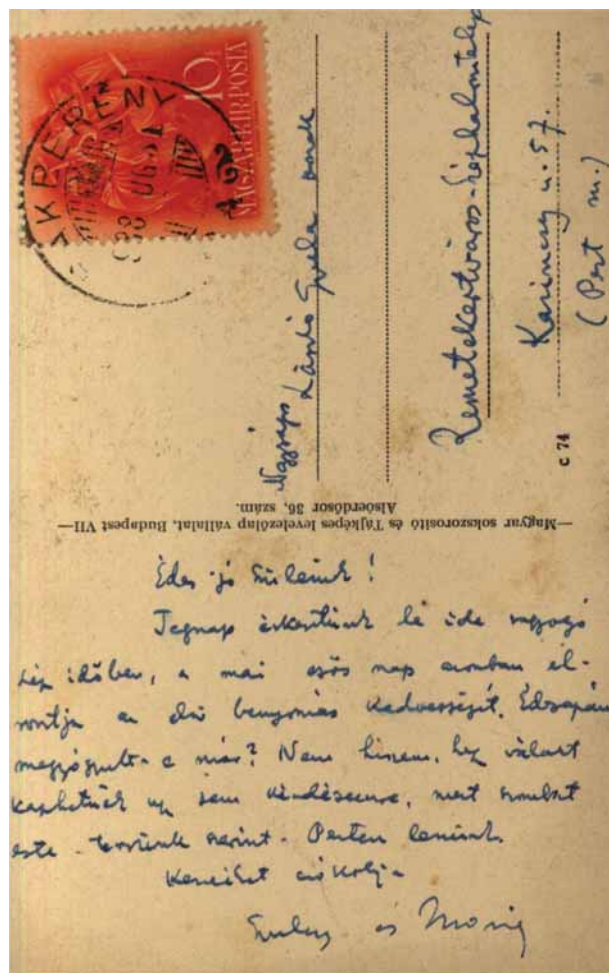 MAGYAR KIR. POSTA
10
Nagyságos
László Gyula urnak
Remetekertváros-Széphalomtelep
Kazinczy u. 57.
(Pest m.)
C 74
—Magyar sokszorosító és Tájképes levelezőlap vállalat, Budapest VII—
Alsóerdősor 36, szám.
Édes jó Szüleink!
Tegnap érkeztünk le ide ragyogó
szép időben, a mai esős nap azonban el-
rontja az első benyomás kedvességét. Édesapám
meggyógyult-e már? Nem hiszem, hogy választ
kaphatnék úgy sem kérdésemre, mert szombat
este - tervünk szerint - Pesten leszünk.
Kezeiket csókolja
és